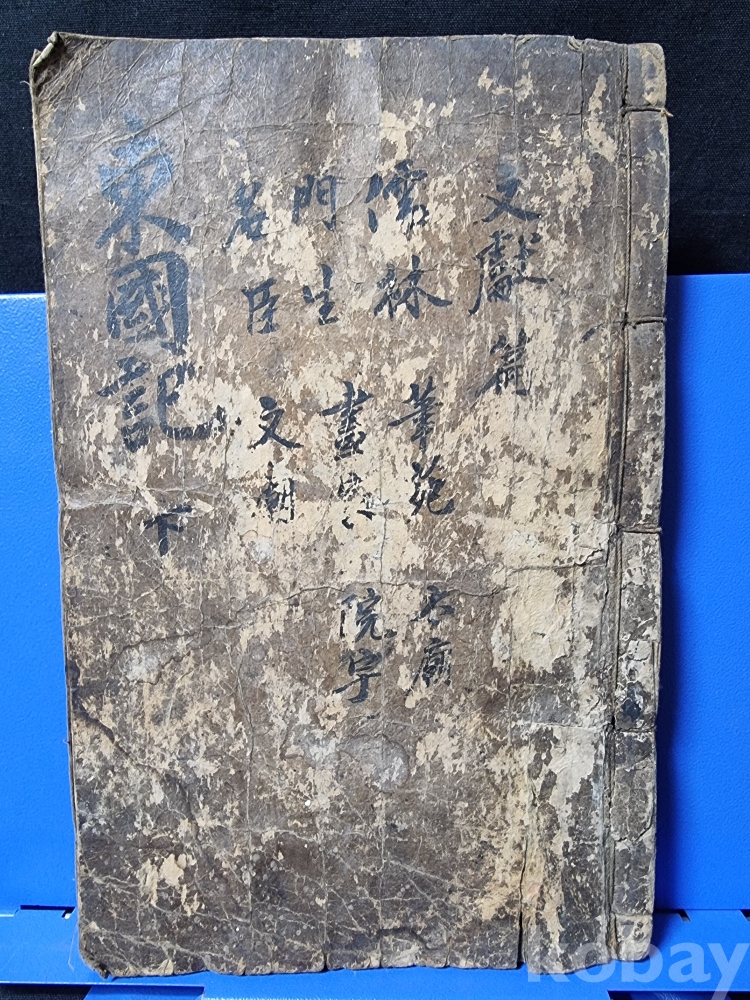 文獻篇
儒林 筆苑 太廟
門生 畫典 院宇
名臣 文廟
東國記 下
kobay